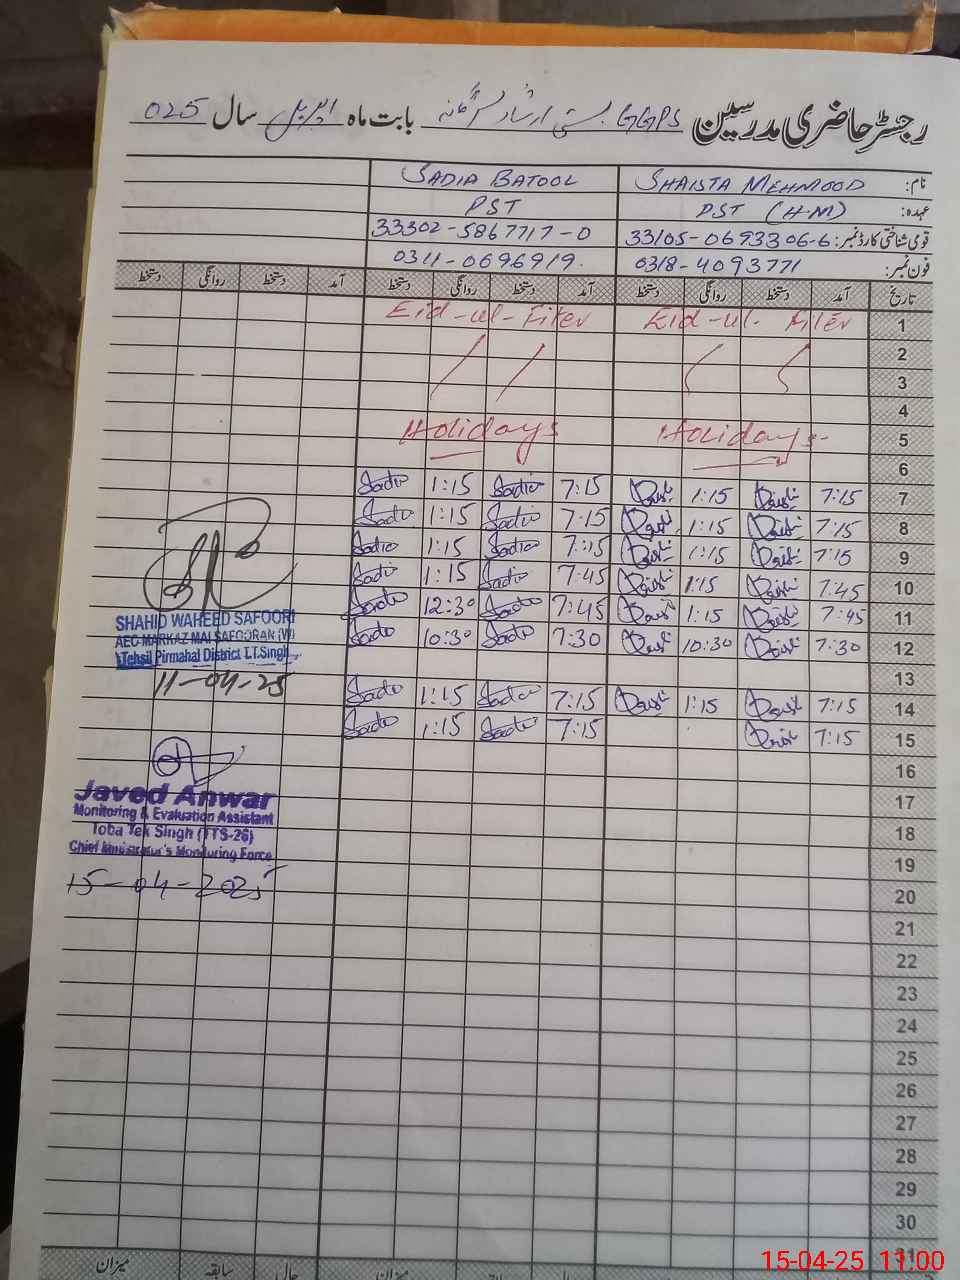 رجسٹر حاضری مدرسین GGPS بستی ارشاد بابت ماہ اپریل سال 025
نام: SHAISTA MEHMOOD SADIA BATOOL
عہدہ: PST (H.M) PST
قومی شناختی کارڈ نمبر: 33105-0693306-6 33302-5867717-0
فون نمبر: 0318-4093771 0311-0696919.
تاریخ آمد دستخط روانگی دستخط آمد دستخط روانگی دستخط آمد دستخط روانگی دستخط
1 Eid-ul-Filer Eid-ul-Fiter
2
3
4
5 Holidays Holidays
6
7 7:15 1:15 7:15 Sadia 1:15 Sadia
8 7:15 1:15 7:15 Sadia 1:15 Sadia
9 7:15 1:15 7:15 Sadia 1:15 Sadia
10 7:45 1:15 7:45 Sadia 1:15 Sadia
11 7:45 1:15 7:45 Sadia 12:30 Sadia
12 7:30 10:30 7:30 Sadia 10:30 Sadia
13
14 7:15 1:15 7:15 Sadia 1:15 Sadia
15 7:15 7:15 Sadia 1:15 Sadia
16
17
18
19
20
21
22
23
24
25
26
27
28
29
30
31
SHAHID WAHEED SAFOORI
AEO MARKAZ MAI SAFOORAN (W)
Tehsil Pirmahal District T.T.Singh
11-04-25
Javed Anwar
Monitoring & Evaluation Assistant
Toba Tek Singh (TTS-26)
Chief Minister's Monitoring Force
15-04-2025
میزان حالی سابقہ میزان
15-04-25 11:00